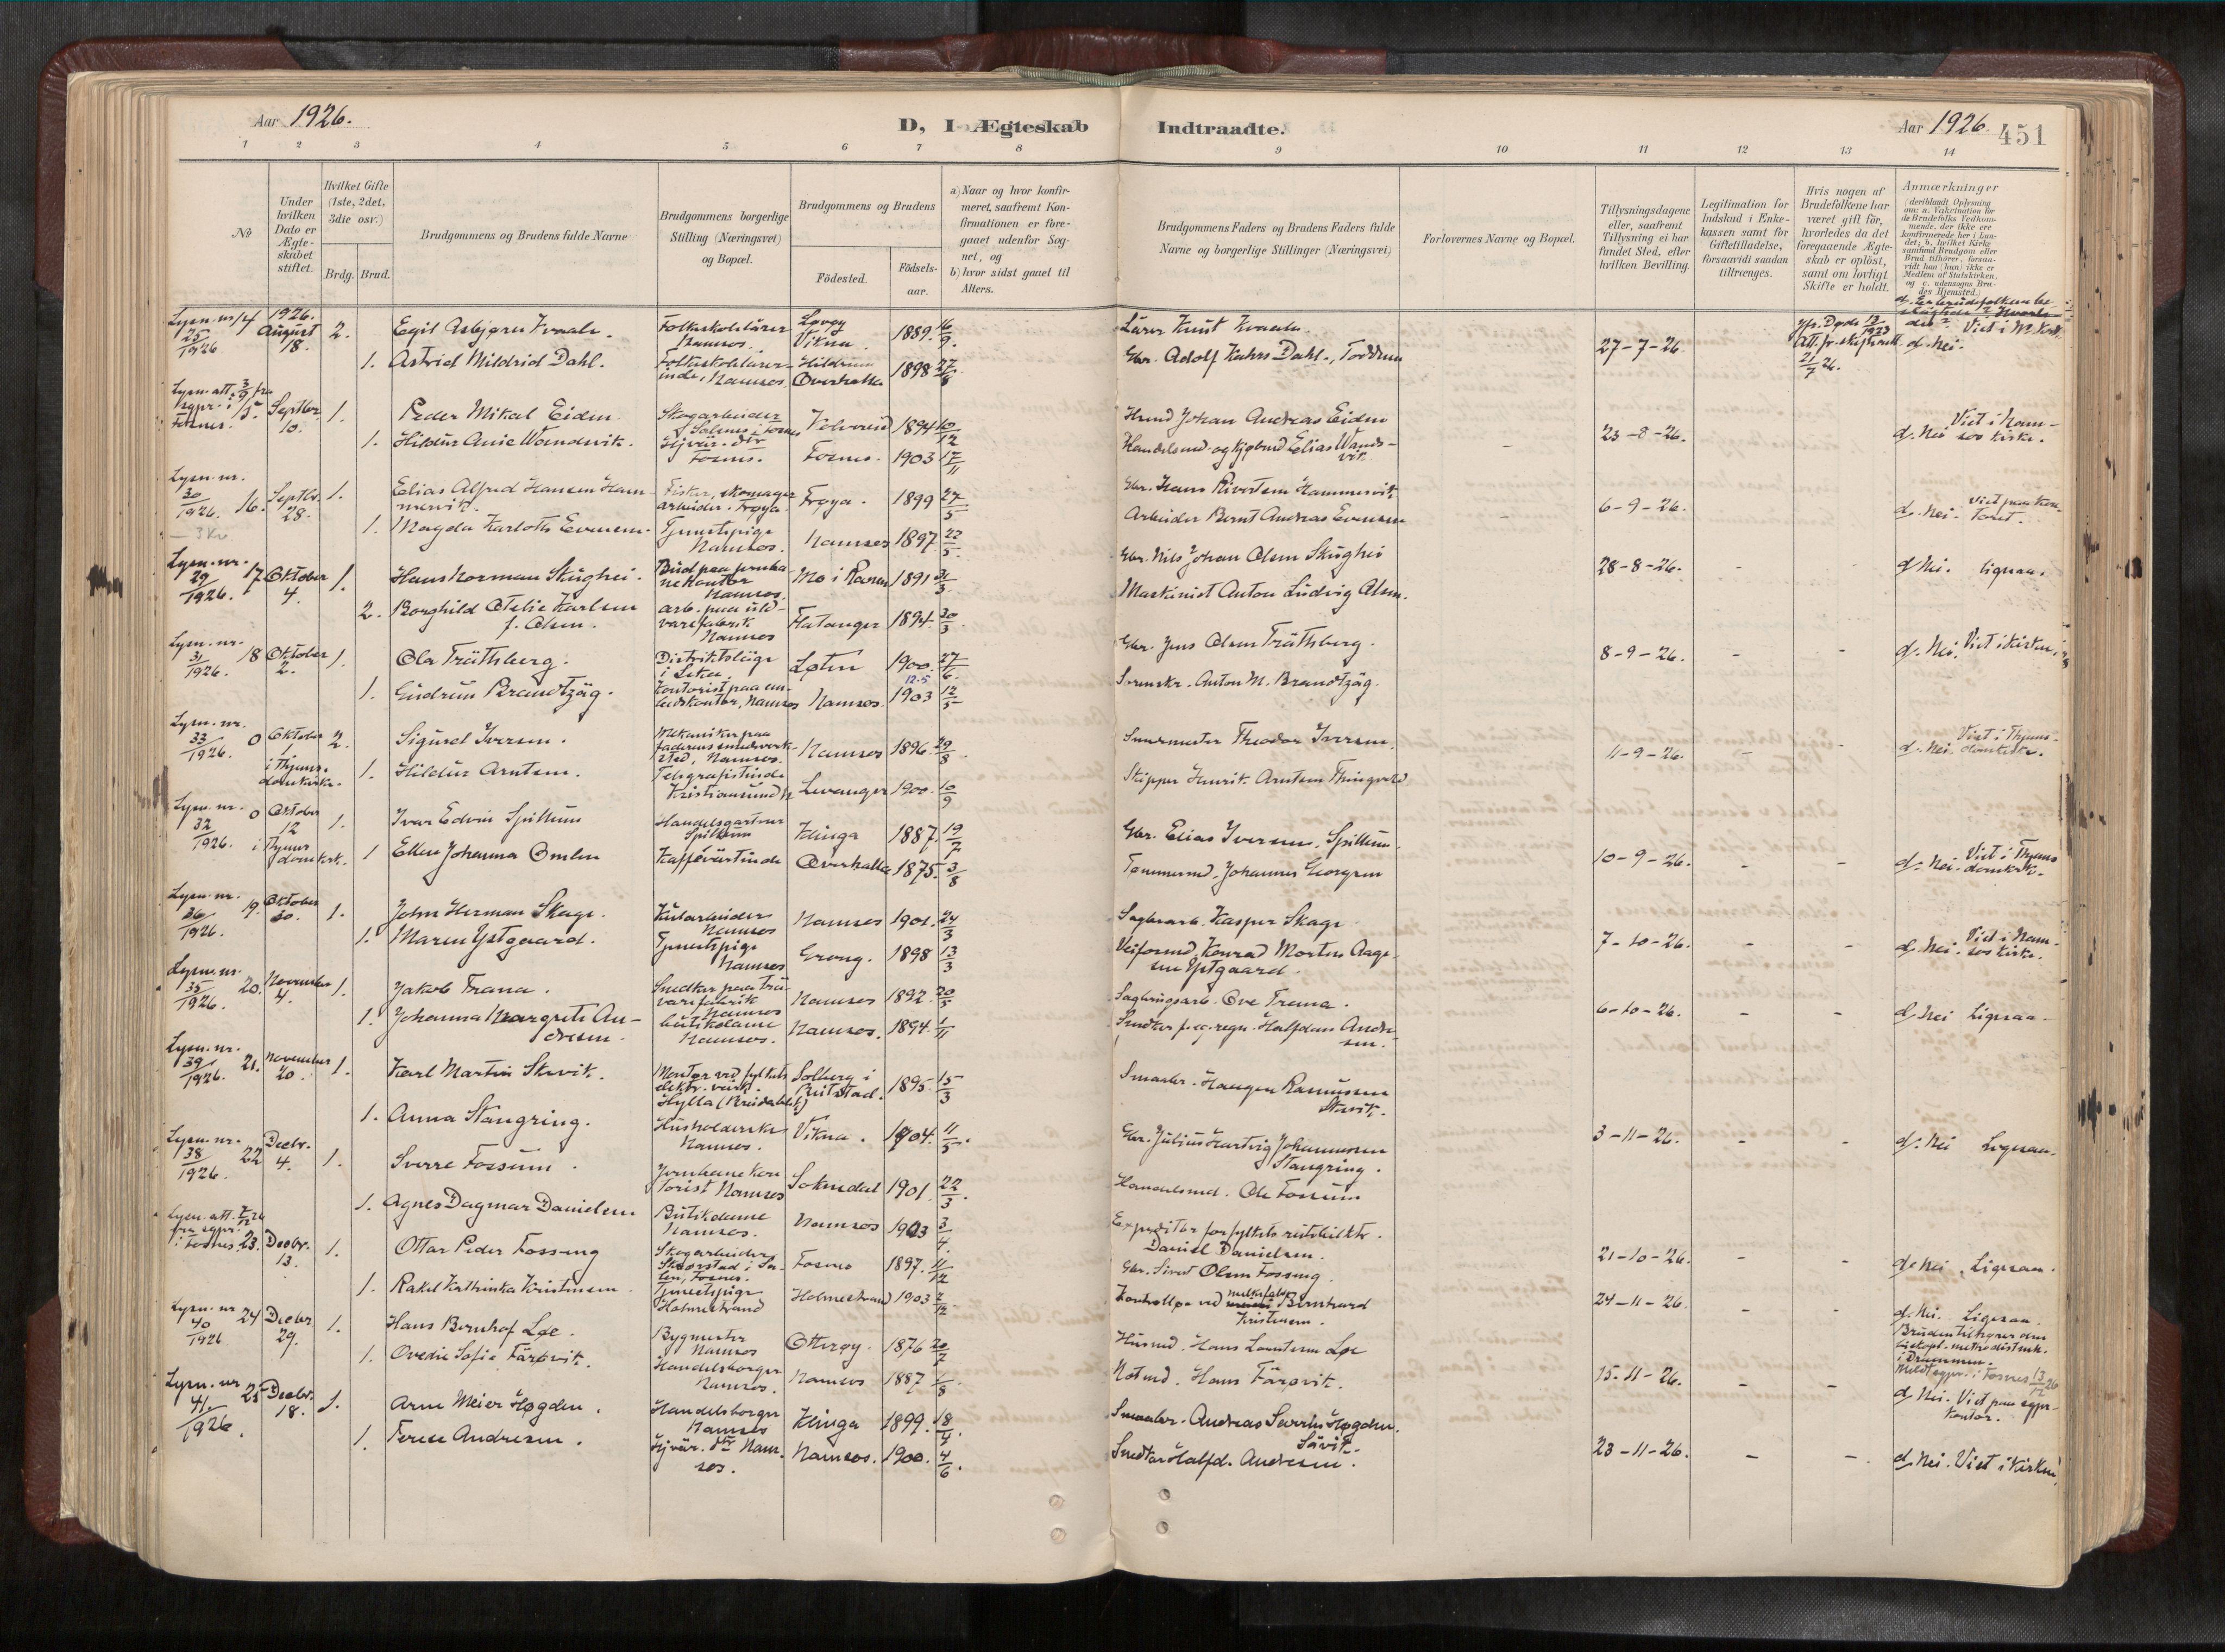 Aar 1926.
D, I Ægteskab Indtraadte.
Aar 1926. 451
1 2 3 4 5 6 7 8 9 10 11 12 13 14
No
Under hvilken Dato er Ægteskabet stiftet.
Hvilket Gifte (1ste, 2det, 3die osv.)
Brdg. Brud.
Brudgommens og Brudens fulde Navne
Brudgommens borgerlige Stilling (Næringsvei) og Bopæl.
Brudgommens og Brudens
Födested.
Födsels-aar.
a) Naar og hvor konfirmeret, saafremt Konfirmationen er foregaaet udenfor Sognet, og
b) hvor sidst gaaet til Alters.
Brudgommens Faders og Brudens Faders fulde Navne og borgerlige Stillinger (Næringsvei)
Forlovernes Navne og Bopæl.
Tillysningsdagene eller, saafremt Tillysning ei har fundet Sted, efter hvilken Bevilling.
Legitimation for Indskud i Enkekassen samt for Giftetilladelse, forsaavidt saadan tiltrænges.
Hvis nogen af Brudefolkene har været gift för, hvorledes da det foregaaende Ægteskab er oplöst, samt om lovligt Skifte er holdt.
Anmærkninger
Lysn. nr. 25/1926 14 1926. August 18. 2. Egil Asbjørn Kvaale. Folkeskolelärer Namsos. Vikna. 1889. 16/9. Lärer Knut Kvaale
27-7-26.
1. Astrid Mildrid Dahl. Folkeskolelärerinde, Namsos. Overhalla 1898 27/8 Gbr. Adolf Dahl.
d. Nei.
Lysn. att. 3/9 fra sgpr. i Fosnes. 15. Septbr. 10. 1. Peder Mikal Eiden Skogarbeider Salsnes i Fosnes 1894 10/12 Husmd Johan Andreas Eiden
23-8-26.
d. Nei Viet i Namsos kirke.
1. Hildur Anie Wandsvik. Fosnes. Fosnes. 1903 17/11 Handelsmd. og kjøbmd Elias Wandsvik
Lysn. nr. 30/1926. 16. Septbr. 28. 1. Elias Alfred Hansen Hammervik. Fisker, Frøya. Frøya. 1899 27/5 Gbr. Hans Hammervik
6-9-26.
d. Nei. Viet paa kontoret.
1. Magda Karlotte Evensen. Tjenestepige Namsos. Namsos 1897. 22/5. Arbeider Bernt Andreas Evensen
Lysn. nr. 29/1926. 17 Oktober 4. 1. Hans Norman Skughei. Bud paa Namsos. Mo i Ranen 1891 31/3 Gbr. Nils Johan Olsen Skughei
28-8-26. - - d. Nei. ligesaa.
2. Borghild Otelie Karlsen f. Olsen. arb. paa uldvarefabrik Namsos Flatanger 1894. 30/3. Maskinist Anton Ludvig Olsen.
Lysn. nr. 31/1926. 18 Oktober 2. 1. Ola Träthsberg. Distriktsläge i Leka. Løten 1900. 27/6. Gbr. Jens Olsen Träthsberg.
8-9-26. - - d. Nei. Viet i kirken.
1. Gudrun Brandtzäg. Namsos Namsos. 12.5 1903 12/5 Anton M. Brandtzäg.
Lysn. nr. 33/1926. 0 Oktober 1 i Thjems domkirke. 2. Sigurd Iversen. Mekaniker paa faderens smedverksted, Namsos. Namsos 1896. 29/8. Smedmester Theodor Iversen.
11-9-26. - - d. Nei. Viet i Thjems domkirke.
1. Hildur Arntsen. Telegrafistinde Kristiansund N Levanger 1900. 10/9 Skipper Henrik Arntsen
Lysn. nr. 32/1926. 0 Oktober 12 i Thjems domkirk. 1. Ivar Edvin Spillum Handelsgartner Spillum Klinga 1887. 19/7 Gbr. Elias Iversen, Spillum.
10-9-26. - - d. Nei. Viet i Thjems domkirke.
1 Ellen Johanna Omlen Kaffevärtinde Overhalla 1875. 3/8 Tømmermd. Johannes Georgsen
Lysn. nr. 36/1926. 19. Oktober 30. 1. John Herman Skage. Namsos Namsos 1901. 24/3 Sagbrarb. Kasper Skage.
7-10-26. - - d. Nei. Viet i Namsos kirke.
1. Maren Ystgaard. Tjenestepige Namsos Grong. 1898 13/3 Veiformd. Konrad Morten Aagesen Ystgaard.
Lysn. nr. 35/1926. 20. November 4. 1. Jakob Trana. Snedker paa trävarefabrik Namsos Namsos 1892. 20/5 Sagbrugsarb. Ove Trana.
6-10-26. - - d. Nei Ligesaa.
1. Johanna Margrete Andresen. Butikdame Namsos. Namsos. 1894. 1/11 Snedker Halfdan Andresen.
Lysn. nr. 39/1926. 21. November 20. 1. Karl Martin Skavik. Montør ved fylkets elektr. verk. Solberg i Beitstad. 1895. 15/3 Smaabr. Haagen Rasmussen Skavik.
3-11-26. - - d. Nei Ligesaa.
1. Anna Stangring. Husholderske Namsos. Vikna. 1904. 11/5. Gbr. Julius Hartvig Johannessen Stangring.
Lysn. nr. 38/1926. 22 Decbr. 4. 1. Sverre Fossum. Jernbanekontorist Namsos Soknedal 1901. 22/3. Handelsmd. Ole Fossum
21-10-26. - - d. Nei. Ligesaa.
1. Agnes Dagmar Danielsen Butikdame Namsos. Namsos 1903 3/4. Expeditør for fylkets rutebilktr. Daniel Danielsen.
Lysn. att. fra sgpr. i Fosnes. 23. Decbr. 13. 1. Ottar Peder Fossing Skogarbeider Fosnes. Fosnes 1897. 11/12 Gbr. Sivert Olsen Fossing.
24-11-26. - - d. Nei. Ligesaa.
1. Rakel Kathinka Kristensen. Tjenestepige Holmestrand Holmestrand 1903 2/12. Bernhard Kristensen.
Bruden tilhører den biskopl. methodistmk. i Drammen.
Lysn. nr. 40/1926 24 Decbr. 29. 1. Hans Bernhof Løe. Bygmester Namsos Otterøy. 1876 20/7 Husmd. Hans Løe
15-11-26. - - d. Nei. Viet paa sgpr. kontor.
1. Ovedie Sofie Färøvik. Handelsborger Namsos. Namsos 1887 1/8. Notmd. Hans Färøvik.
Lysn. nr 41/1926. 25 Decbr. 18. 1. Arne Meier Høgden. Handelsborger Namsos Klinga 1899. 18/4. Smaabr. Andreas Høgden, Sävik.
23-11-26. - - d. Nei. Viet i kirken.
1. Terese Andresen. Hjvär. dtr Namsos. Namsos. 1900. 4/6. Snedker Halfd. Andresen.